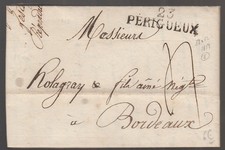 23
PÉRIGUEUX
Messieurs
Rolagray & fils aîné Nég.ts
à
Bordeaux